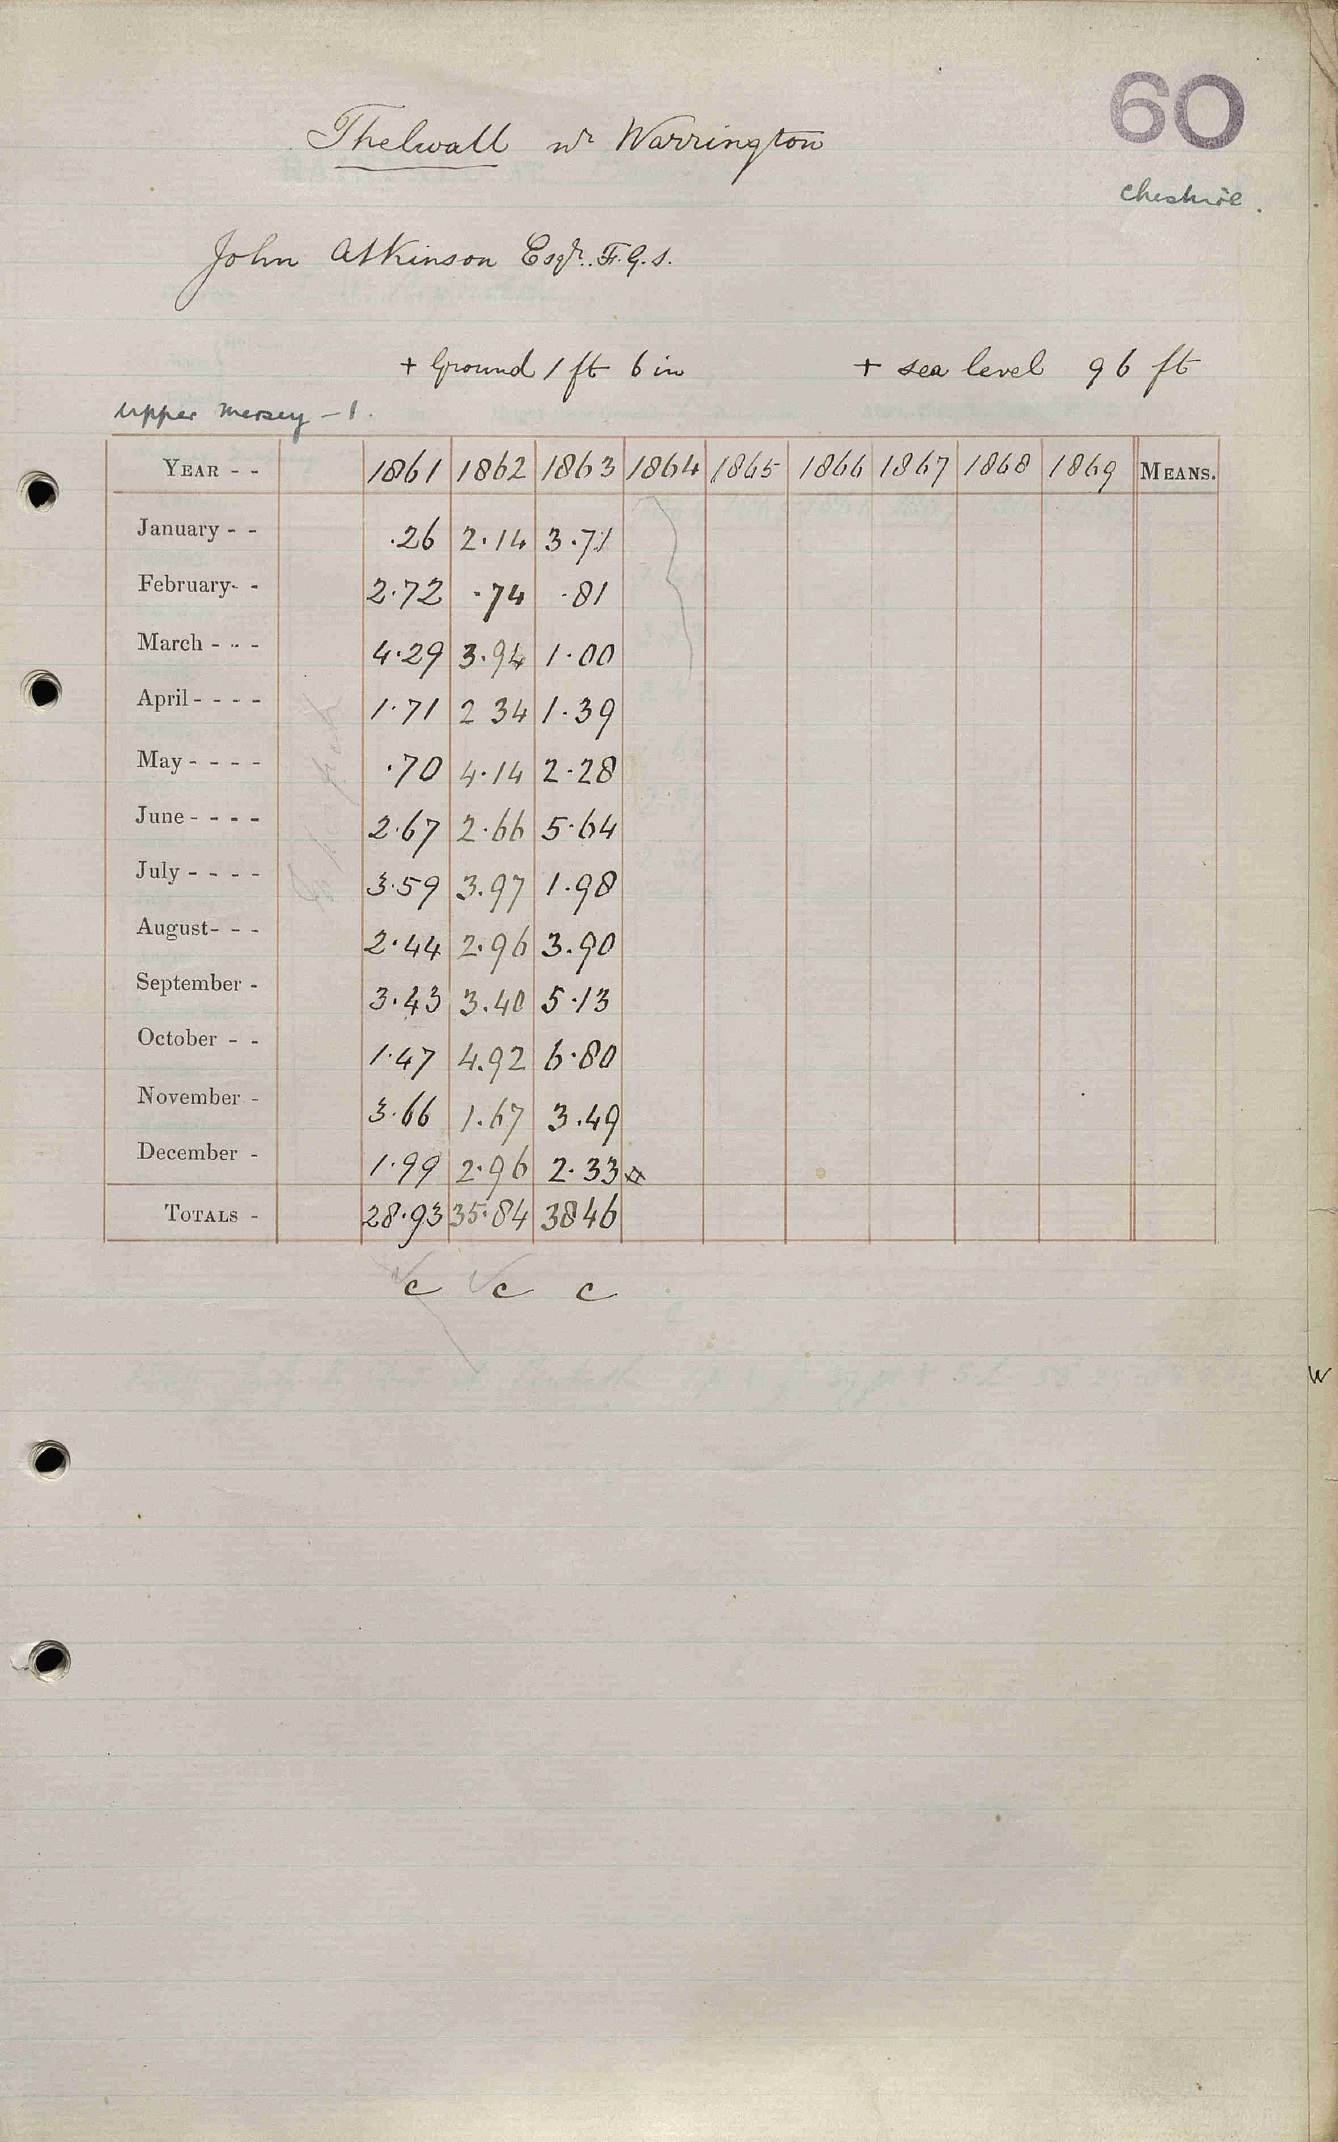 60
Thelwall nr Warrington
Cheshire.
John Atkinson Esqr. F.G.S.
+ Ground 1 ft 6 in + sea level 96 ft
Upper Mersey - 1.
YEAR - - 1861 1862 1863 1864 1865 1866 1867 1868 1869 MEANS.
January - - .26 2.14 3.71
February - - 2.72 .74 .81
March - - - 4.29 3.94 1.00
April - - - - 1.71 2 34 1.39
May - - - - .70 4.14 2.28
June - - - - 2.67 2.66 5.64
July - - - - 3.59 3.97 1.98
August - - - 2.44 2.96 3.90
September - 3.43 3.40 5.13
October - - 1.47 4.92 6.80
November - 3.66 1.67 3.49
December - 1.99 2.96 2.33
TOTALS - 28.93 35.84 3846
c c c
W